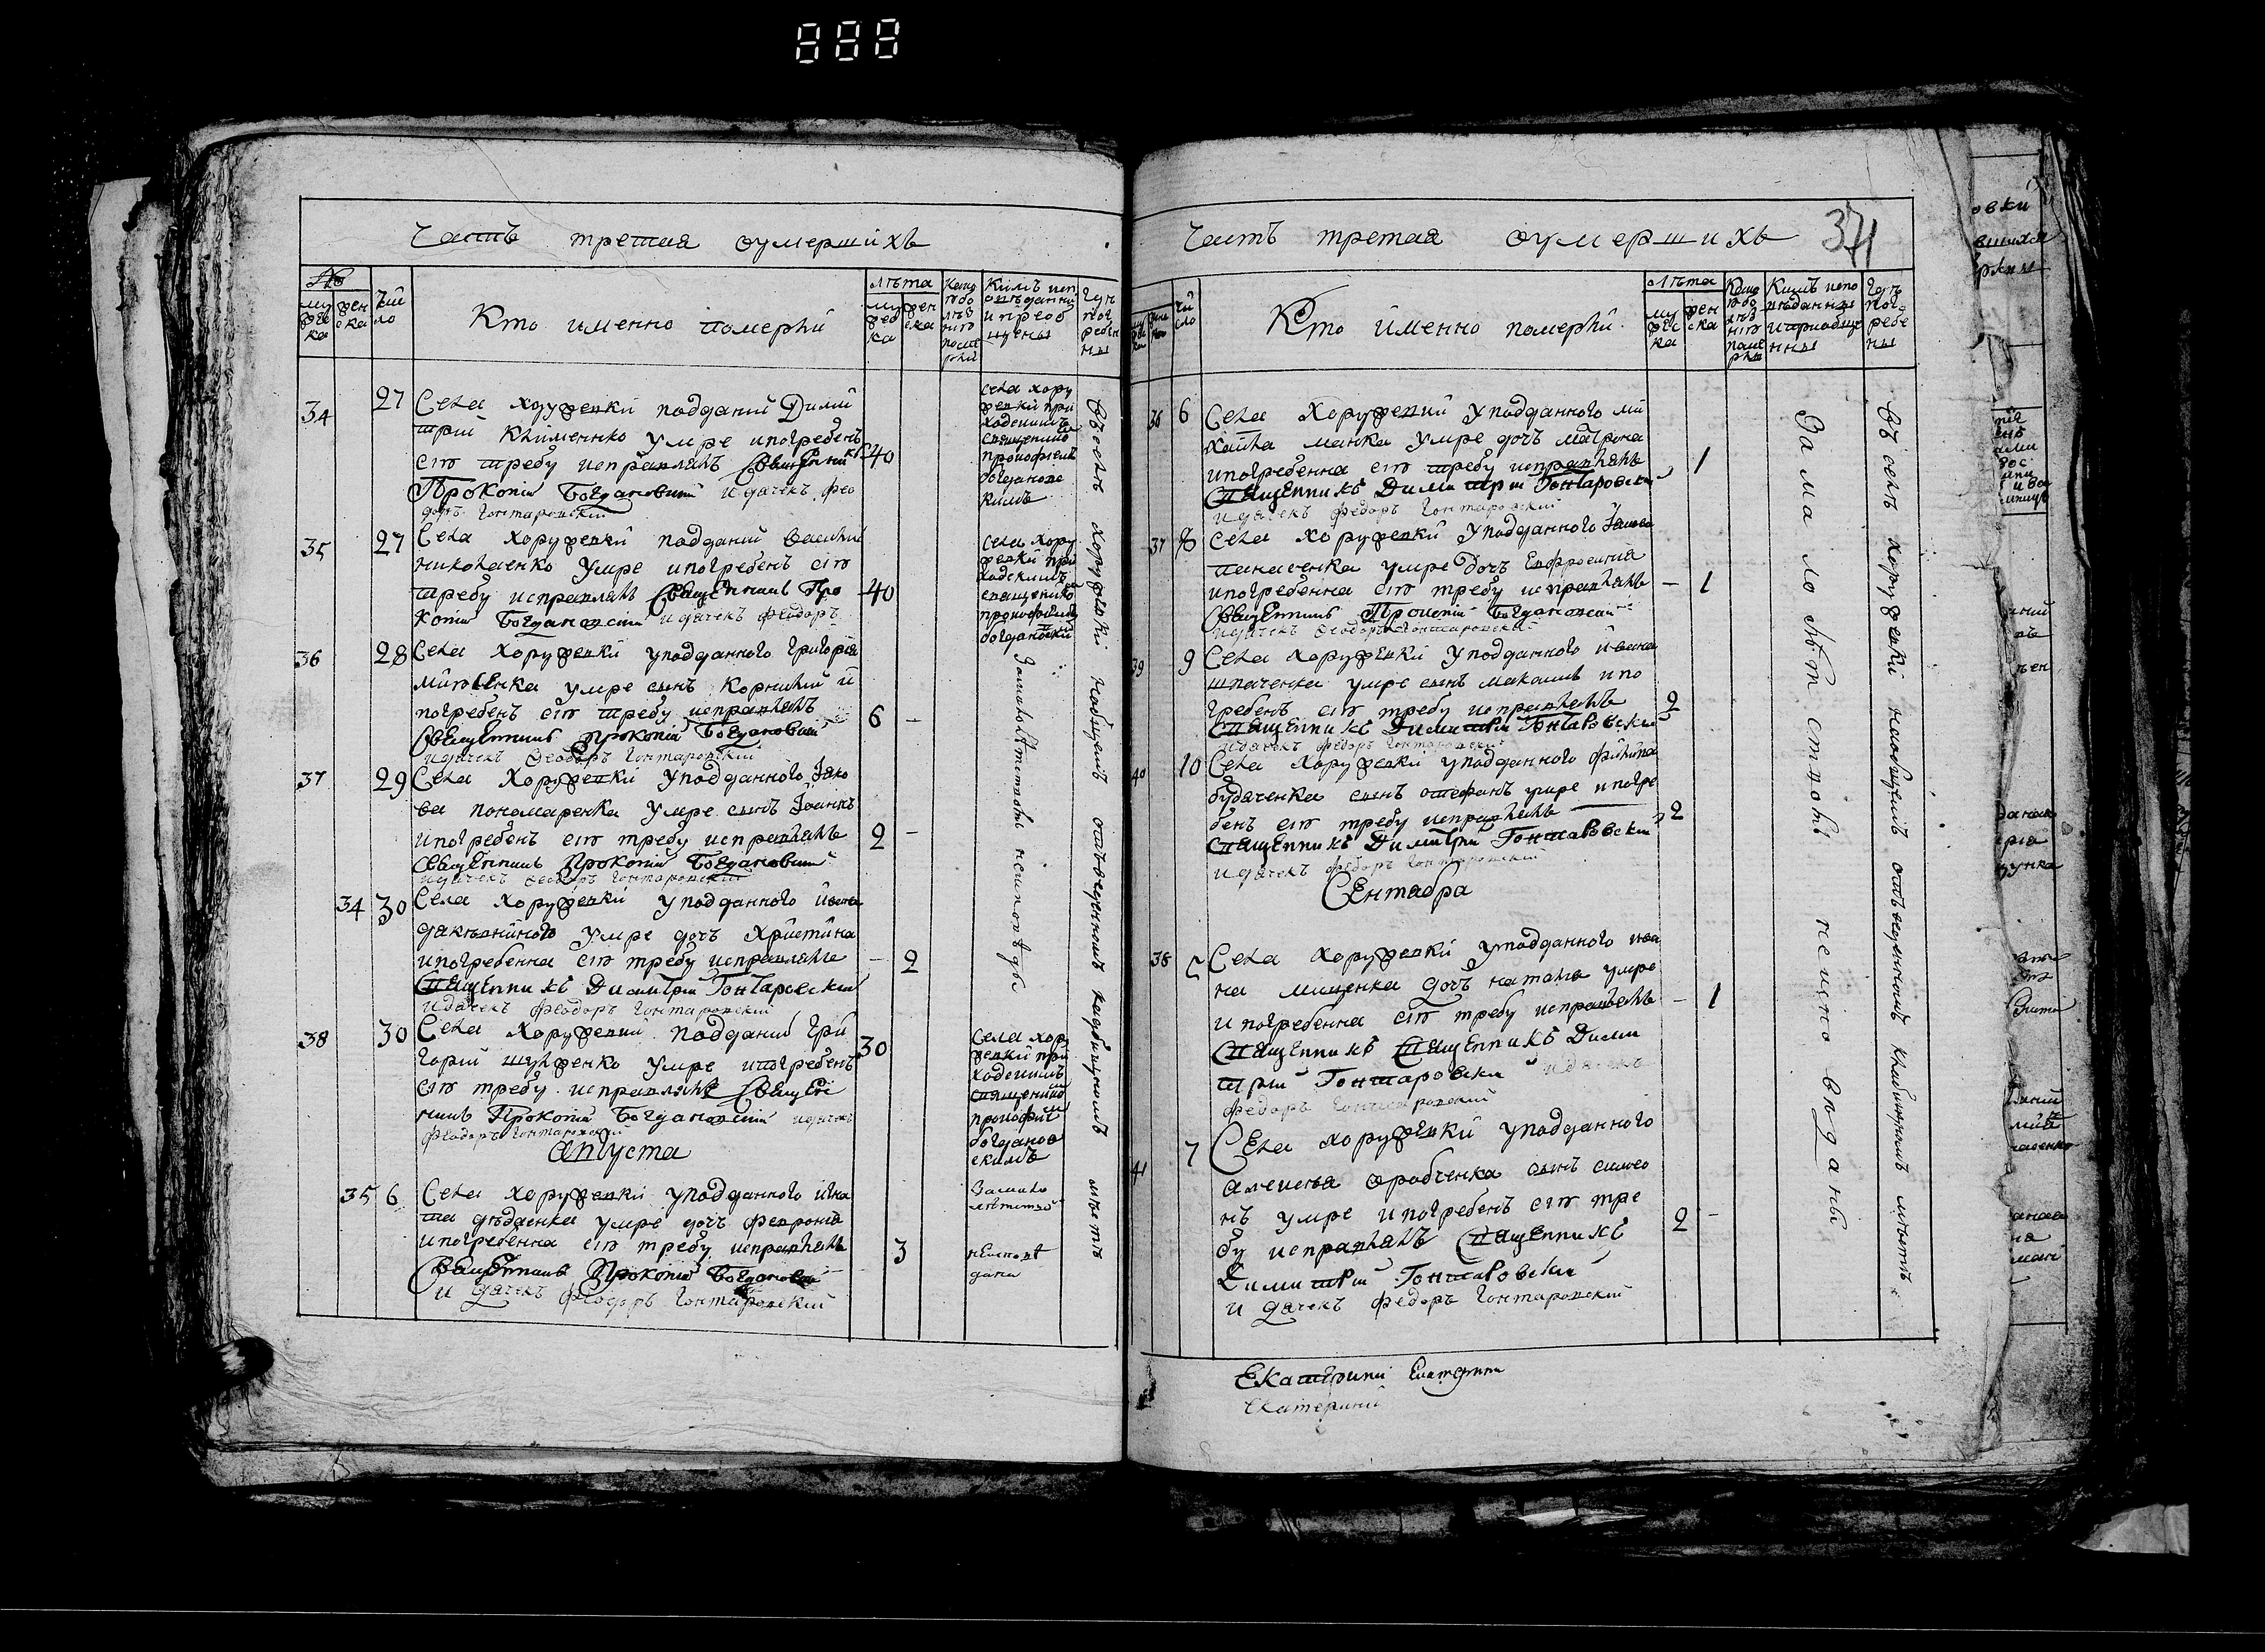 888
Часть третая оумершихъ
№
муже
ска
жен
ска
Чи
сло
Кто именно померлъ
лѣта
муже
ска
жен
ска
Кимъ исп
овѣданы
и приоб
щены
27 Села хоружевки подданій Дими
34
трій Клименко умре и погребенъ
сію требу исправлялъ Священникъ 40
Прокопій Богдановскій и дячекъ Фео
доръ Гонтаровскій
Села хору
жевки при
ходскимъ
священико
Прокофіемъ
богдановс
кимъ
35 27 Села хоружевки подданій василій
николаенко умре и погребенъ сію
требу исправлялъ Священникъ Про 40
копій Богдановскій и дячекъ Феодоръ
Села хору
жевки при
ходскимъ
священико
прокофіемъ
богдановски
36 28 Села хоружевки у подданного григорія
умре сынъ Корнилій и
погребенъ сію требу исправлялъ 6 –
Священникъ Прокопій Богдановскій
и дячекъ Феодоръ Гонтаровскій
37 29 Села Хоружевки у подданного Яко
ва пономаренка умре сынъ Іоаннъ
и погребенъ сію требу исправлялъ 2 –
Священникъ Прокопій Богдановскій
и дячекъ Феодоръ Гонтаровскій
34 30 Села хоружевки у подданного
умре дочъ Христина
и погребенна сію требу исправлялъ – 2
Священникъ Димитрій Гонтаровскій
и дячекъ Феодоръ Гонтаровскій
38 30 Села Хоружевки подданій Гри 30
горій умре и погребенъ
сію требу исправлялъ Священ
никъ Прокопій Богдановскій и дячекъ
Феодоръ Гонтаровскій
Села хор
жевки при
ходскимъ
священико
прокофіем
богданов
скимъ
Августа
35 6 Села хоружевки у подданного игна
та дѣдаенка умре дочъ Феврония
и погребенна сію требу исправлялъ 3
Священникъ Прокопій Богдановскій
и дячекъ Феодоръ Гонтаровскій
За мало
лѣтством
неисповѣ
дана
За малолѣтством неисповѣд
въ селѣ хоружевки на общемъ отведенномъ кладбищномъ мѣстѣ
Часть третая оумершихъ
371
Чи
сло
Кто именно померлъ
лѣта
муже
ска
жен
ска
Кимъ испо
вѣданны
и приобще
нны
Гдѣ
погре
бе
ны
36 6 Села Хоружевки у подданного ми
хайла манка умре дочъ матрона
и погребенна сію требу исправлялъ 1
Священникъ Димитрій Гонтаровскій
и дячекъ Федоръ Гонтаровскій
37 8 Села хоружевки у подданного Якова
панасенка умре дочъ Евфросиния
и погребенна сію требу исправлялъ – 1
Священникъ Прокопій Богдановскій
и дячекъ Феодоръ Гонтаровскій
39 9 Села хоружевки у подданного ивана
шпаченка умре сынъ максимъ и по
гребенъ сію требу исправлялъ 2
Священникъ Димитрій Гонтаровскій
и дячекъ Федоръ Гонтаровскій
40 10 Села Хоружевки у подданного филипа
будаченка сынъ стефанъ умре и погре
бенъ сію требу исправлялъ 2
Священникъ Димитрій Гонтаровскій
и дячекъ Федоръ Гонтаровскій
Сентабра
38 5 Села хоружевки у подданного ива
на мищенка дочъ наталя умре
и погребенна сію требу исправлялъ – 1
Священникъ Священникъ Дими
трій Гонтаровскій и дячекъ
Федоръ Гонтаровскій
41 7 Села хоружевки у подданного
алексея оробченка сынъ симео
нъ умре и погребенъ сію тре
бу исправлялъ Священникъ 2 –
Димитрій Гонтаровскій
и дячекъ Федоръ Гонтаровскій
За мало лѣтством не исповѣданы
въ селѣ хоружевки на общемъ отведенномъ кладбищномъ мѣстѣ
Екатерини Екатерини
Екатерини